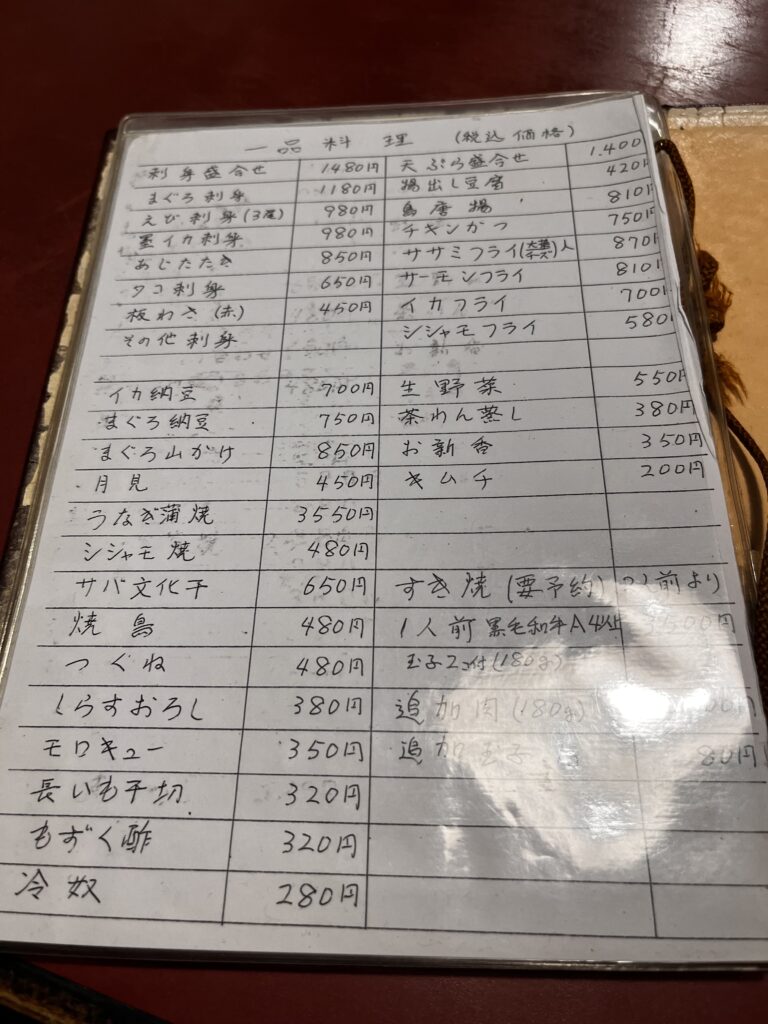 一品料理 (税込価格)
刺身盛合せ 1480円
まぐろ刺身 1180円
えび刺身(3尾) 980円
墨イカ刺身 980円
あじたたき 850円
タコ刺身 650円
板わさ(赤) 450円
その他刺身
イカ納豆 700円
まぐろ納豆 750円
まぐろ山かけ 850円
月見 450円
うなぎ蒲焼 3550円
シシャモ焼 480円
サバ文化干 650円
焼鳥 480円
つくね 480円
しらすおろし 380円
モロキュー 350円
長いも千切 320円
もずく酢 320円
冷奴 280円
天ぷら盛合せ 1.400
揚出し豆腐 420円
鳥唐揚 810円
チキンかつ 750円
ササミフライ(大葉チーズ)入 870円
サーモンフライ 810円
イカフライ 700円
シシャモフライ 580円
生野菜 550円
茶わん蒸し 380円
お新香 350円
キムチ 200円
すき焼(要予約) 2人前より
1人前 黒毛和牛A4以上 3500円
玉子2コ付(180g)
追加肉(180g)
追加玉子 80円